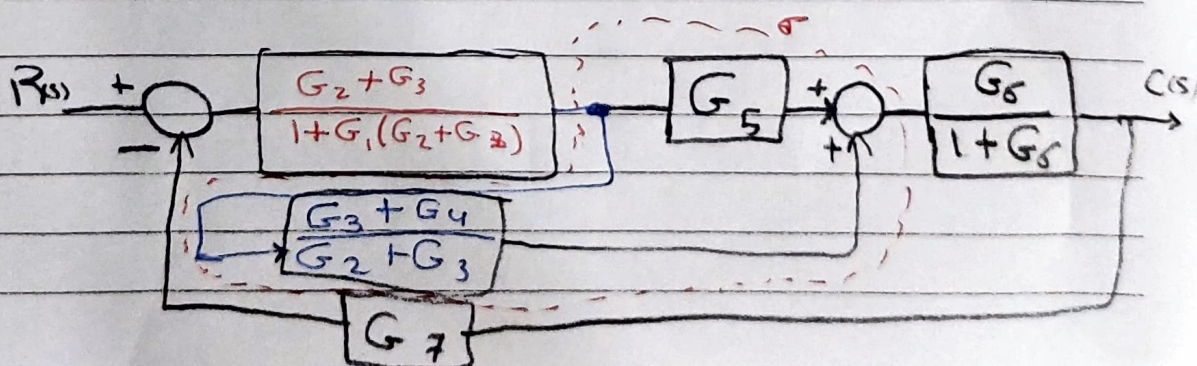 R(s) + G2 + G3 / 1 + G1(G2 + G3) G5 + G6 / 1 + G6 C(s)
− +
G3 + G4 / G2 + G3
G7